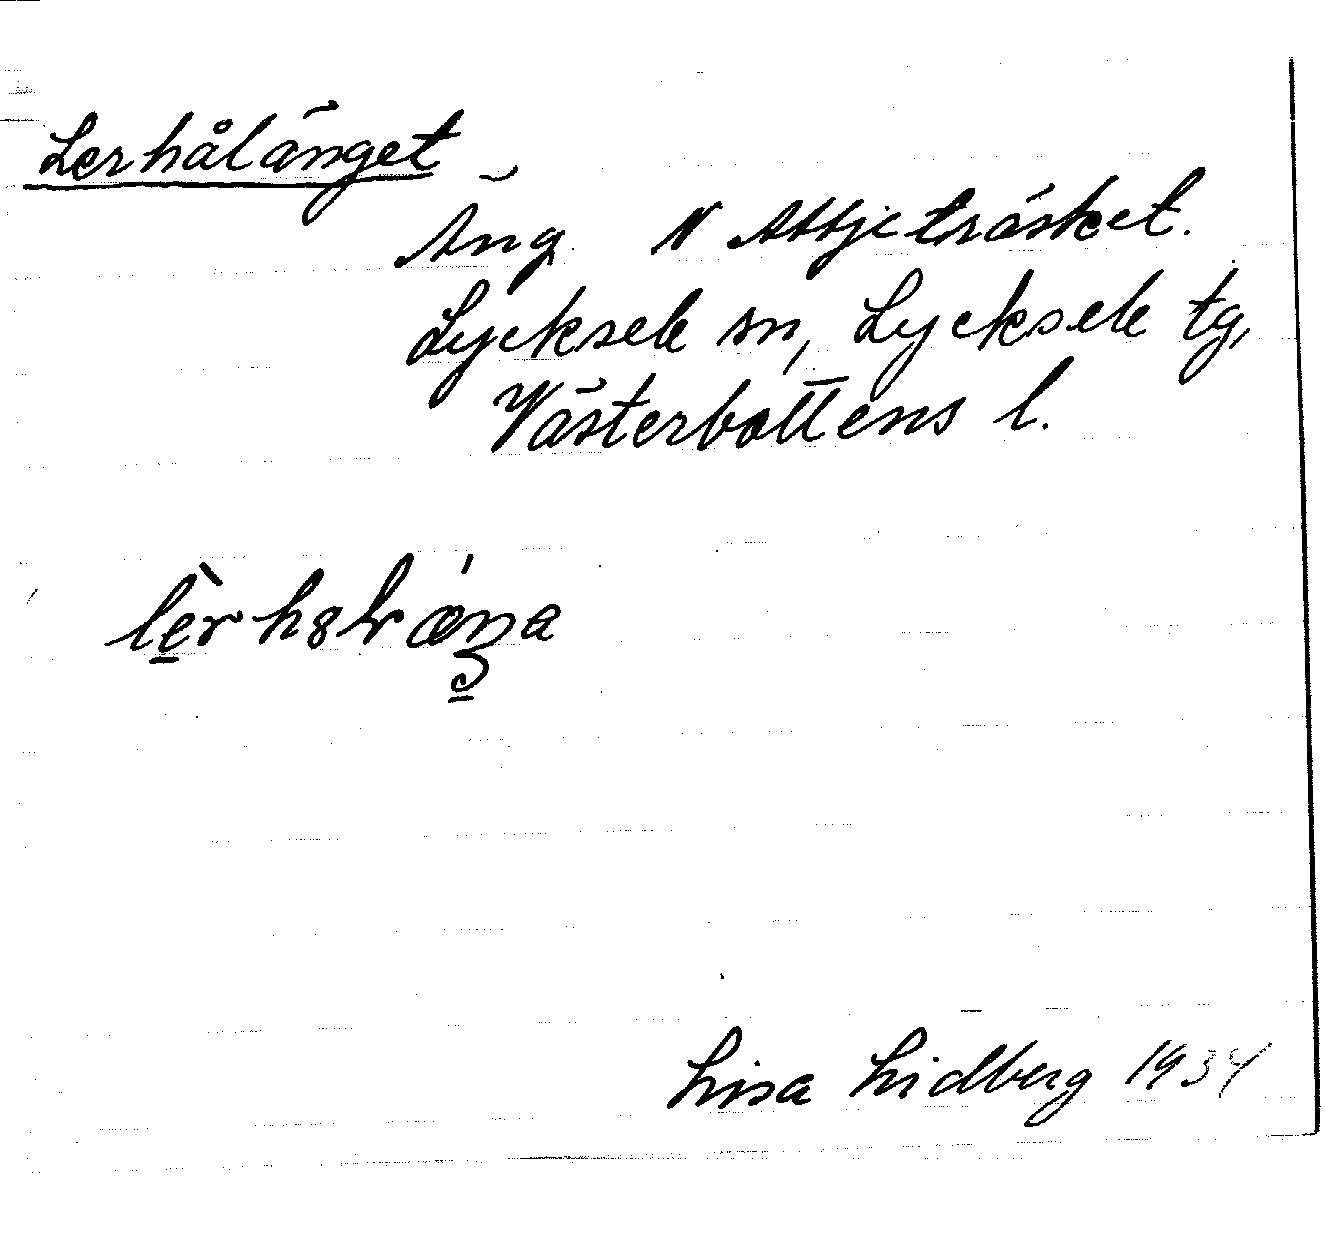 Lerhålänget
Äng N Attjeträsket.
Lycksele sn, Lycksele tg,
Västerbottens l.
Lisa Lidberg 1934